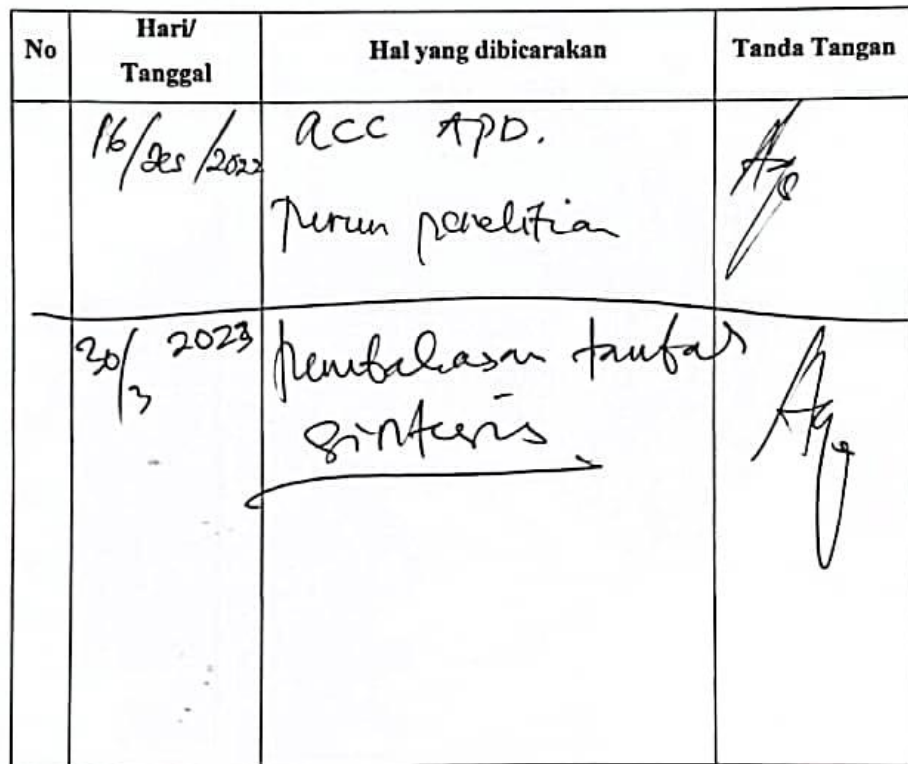 No
Hari/
Tanggal
Hal yang dibicarakan
Tanda Tangan
16/Des/2022
acc APD.
turun penelitian
30/3 2023
pembahasan tambah
sintesis